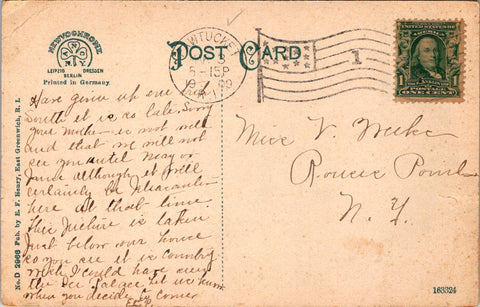 NEWVOCHROME
LEIPZIG DRESDEN
BERLIN
Printed in Germany.
POST CARD
PAWTUCKET
5-15P
1909
R.I.
1
UNITED STATES OF AMERICA
POSTAGE
ONE CENT
Have given up
South it is so late. Sorry
your Mother is not well
and that we will not
see you until May or
June although it will
certainly be pleasanter
here at that time.
This picture is taken
just below our house
so you see it is country
Wish I could have seen
the Ice Palace Let us know
when you decide to come
Miss V. Weeke
Rouses Point
N. Y.
No. D 2966 Pub. by E. F. Henry, East Greenwich, R. I.
163324